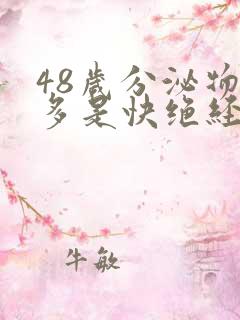 48歲分泌物
多是快绝經
牛敏